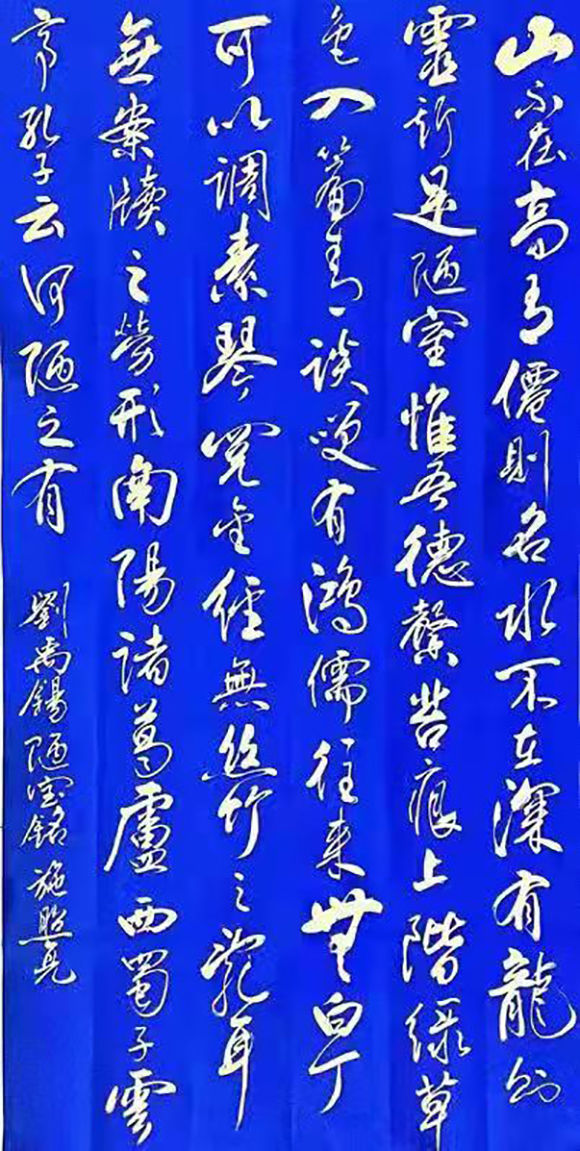 山不在高有僊則名水不在深有龍則
靈斯是陋室惟吾德馨苔痕上階綠草
色入簾青談咲有鴻儒往來無白丁
可以調素琴閱金經無絲竹之亂耳
無案牘之勞形南陽諸葛廬西蜀子雲
亭孔子云何陋之有
劉禹錫陋室銘 施